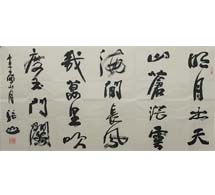 明月出天
山蒼茫雲
海間長風
幾萬里吹
度玉門關
山月